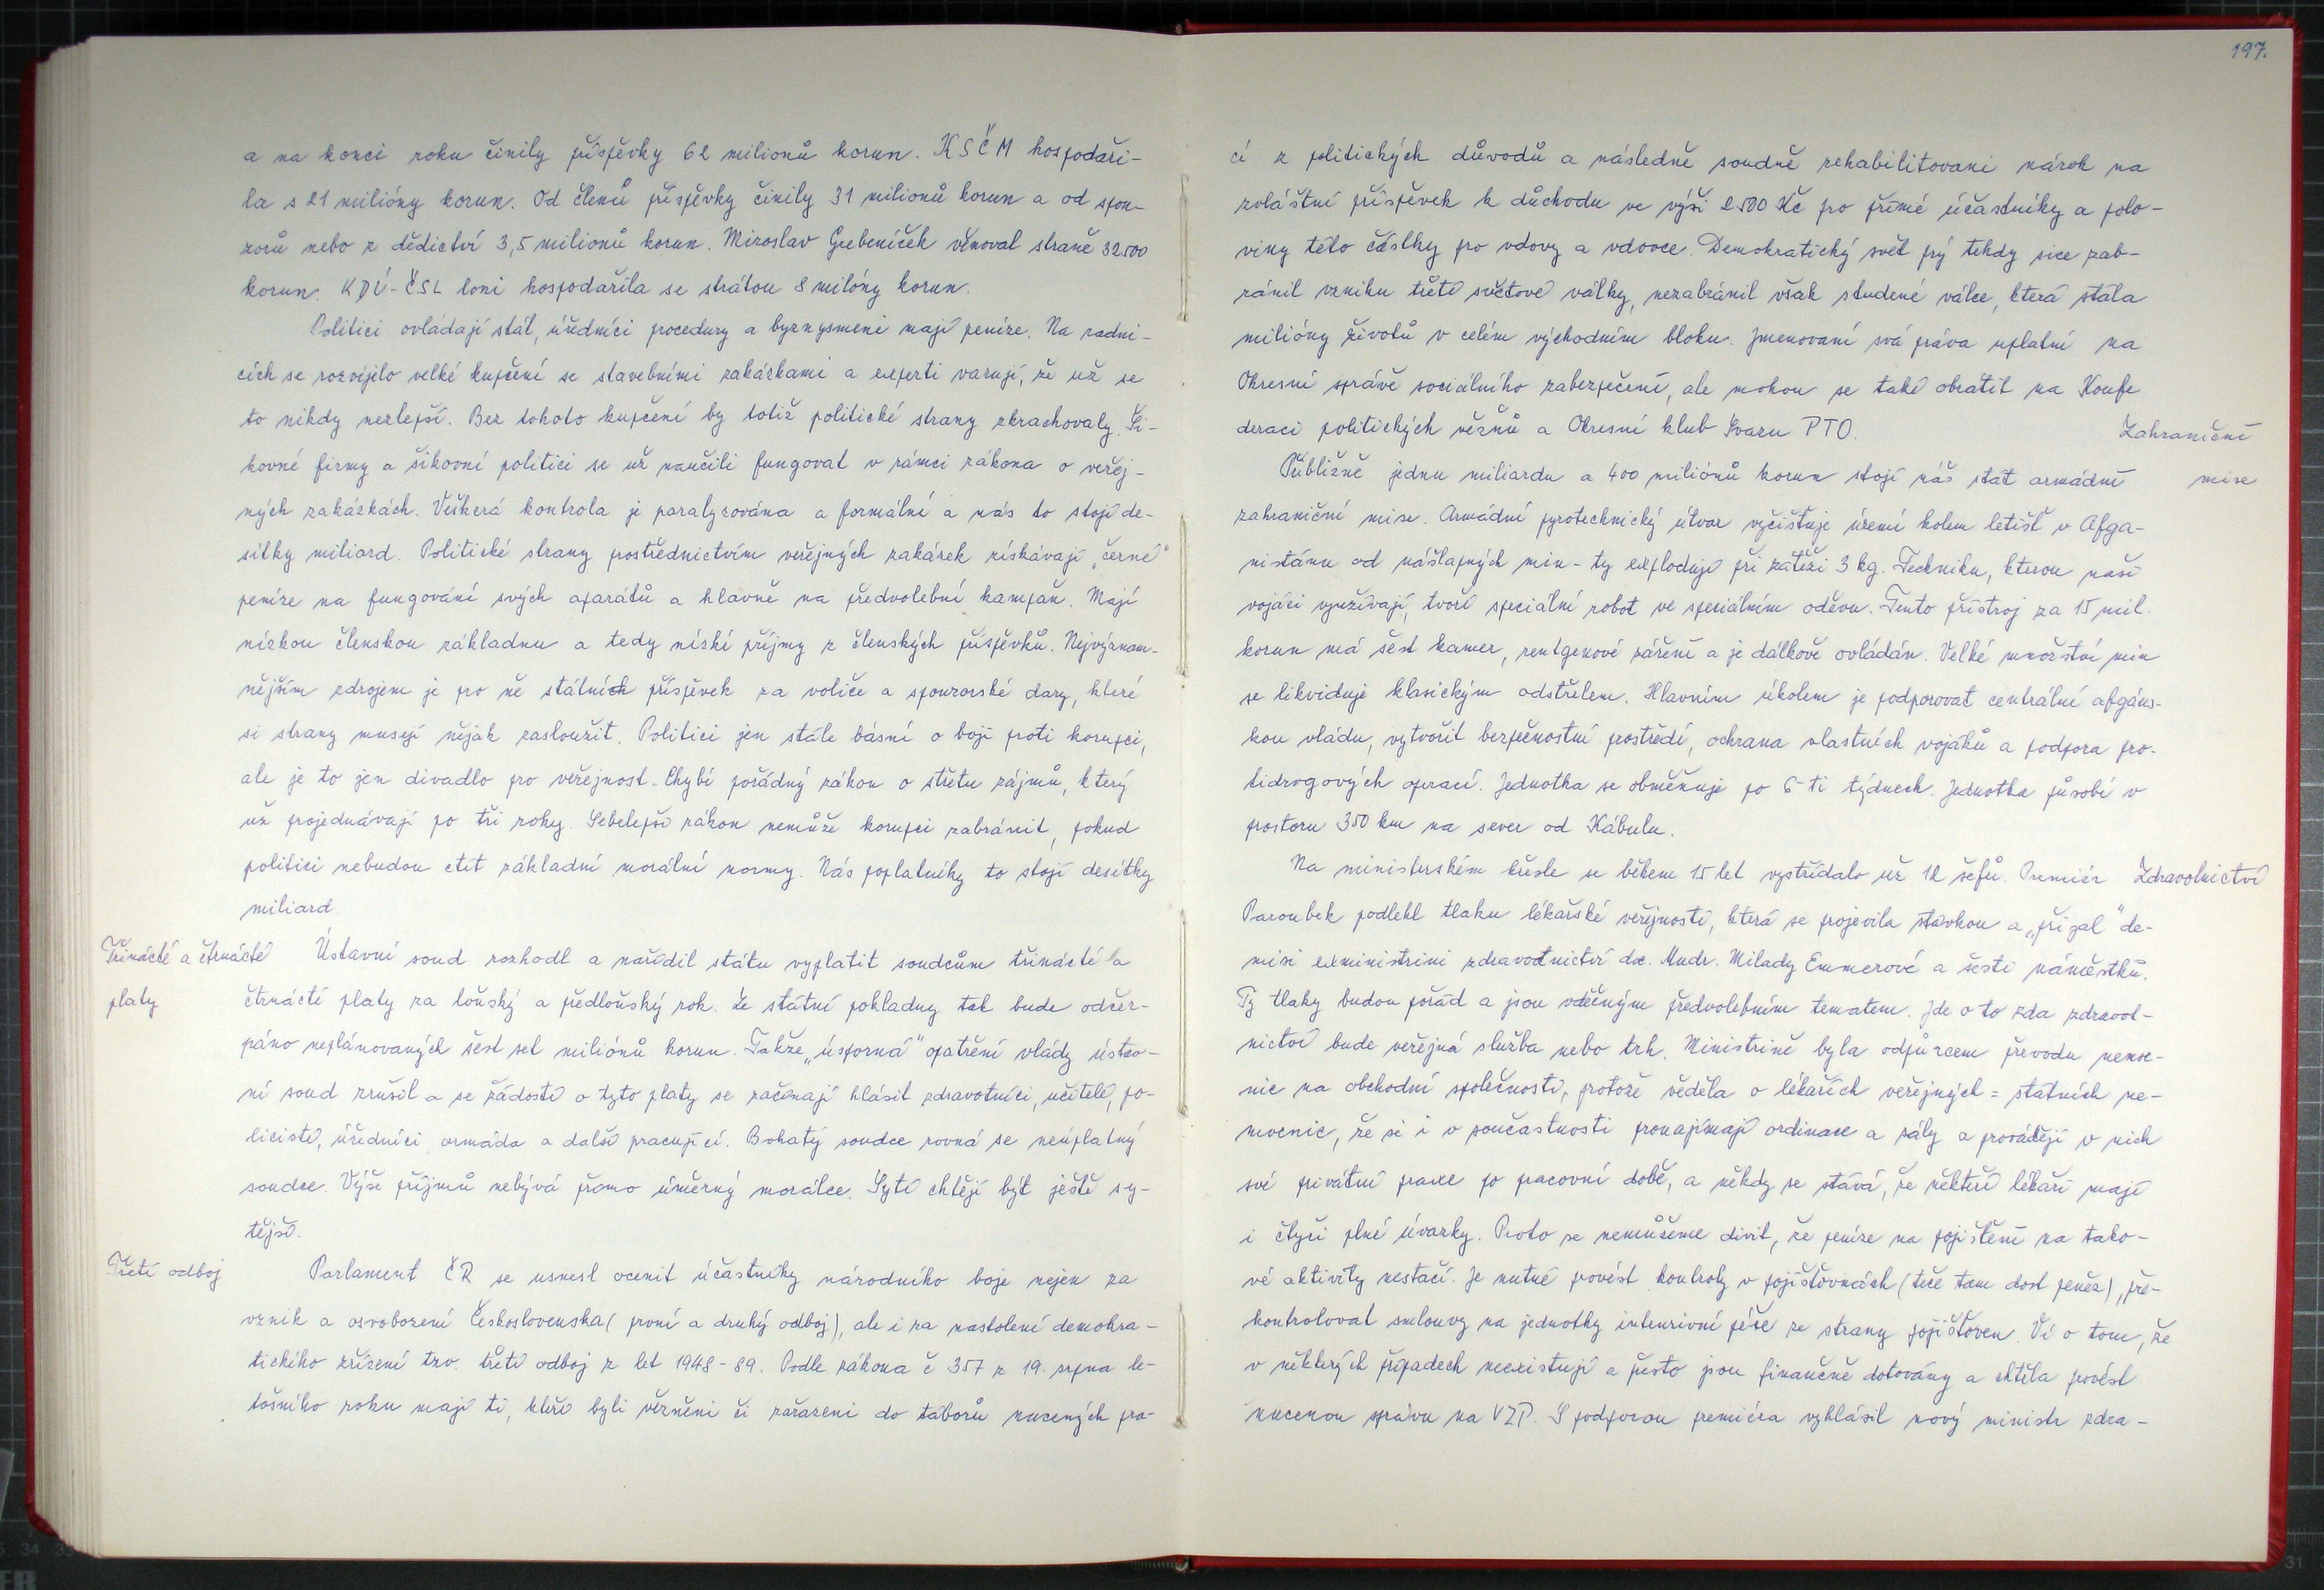 a na konci roku činily příspěvky 62 milionů korun. KSČM hospodaři-
la s 21 milióny korun. Od členů příspěvky činily 31 milionů korun a od spon-
zorů nebo z dědictví 3,5 milionů korun. Miroslav Grebeníček věnoval straně 32500
korun. KDÚ-ČSL loni hospodařila se strátou 8 milóny korun.
Politici ovládají stát, úředníci procedury a byznysmeni mají peníze. Na radni-
cích se rozvíjilo velké kupčení se stavebními zakázkami a experti varují, že už se
to nikdy nezlepší. Bez tohoto kupčení by totiž politické strany zkrachovaly. Ši-
kovné firmy a šikovní politici se už naučili fungovat v rámci zákona o veřej-
ných zakázkách. Veškerá kontrola je paralyzována a formální a nás to stojí de-
sítky miliard. Politické strany prostřednictvím veřejných zakázek získávají „černé"
peníze na fungování svých aparátů a hlavně na předvolební kampaň. Mají
nízkou členskou základnu a tedy nízké příjmy z členských příspěvků. Nejvýznam-
nějším zdrojem je pro ně státních příspěvek za voliče a sponzorské dary, které
si strany musejí nějak zasloužit. Politici jen stále básní o boji proti korupci,
ale je to jen divadlo pro veřejnost. Chybí pořádný zákon o střetu zájmů, který
už projednávají po tři roky. Sebelepší zákon nemůže korupci zabránit, pokud
politici nebudou ctít základní morální normy. Nás poplatníky to stojí desítky
miliard.
Třinácté a čtrnácté
platy
Ústavní soud rozhodl a nařídil státu vyplatit soudcům třinácté a
čtrnácté platy za loňský a předloňský rok. Ze státní pokladny tak bude odčer-
páno neplánovaných šest set miliónů korun. Takže „úsporná" opatření vlády ústav-
ní soud zrušil a se žádostí o tyto platy se začínají hlásit zdravotníci, učitelé, po-
licisté, úředníci armáda a další pracující. Bohatý soudce rovná se neúplatný
soudce. Výše příjmů nebývá přímo úměrný morálce. Sytí chtějí být ještě sy-
tější.
Třetí odboj
Parlament ČR se usnesl ocenit účastníky národního boje nejen za
vznik a osvobození Československa (první a druhý odboj), ale i za nastolení demokra-
tického zřízení tzv. třetí odboj z let 1948-89. Podle zákona č 357 z 19. srpna le-
tošního roku mají ti, kteří byli vězněni či zařazeni do táborů nucených pra-
197.
cí z politických důvodů a následně soudně rehabilitovani nárok na
zvláštní příspěvek k důchodu ve výši 2500 Kč pro přímé účastníky a polo-
viny této částky pro vdovy a vdovce. Demokratický svět prý tehdy sice zab-
ránil vzniku třetí světové války, nezabránil však studené válce, která stála
milióny životů v celém východním bloku. Jmenovaní svá práva uplatní na
Okresní správě sociálního zabezpečení, ale mohou se také obrátit na Konfe
deraci politických vězňů a Okresní klub Svazu PTO.
Zahraniční
mise
Přibližně jednu miliardu a 400 miliónů korun stojí náš stát armádní
zahraniční mise. Armádní pyrotechnický útvar vyčišťuje území kolem letišť v Afga-
nistánu od nášlapných min - ty explodují při zátěži 3 kg. Techniku, kterou naši
vojáci využívají, tvoří speciální robot ve speciálním oděvu. Tento přístroj za 15 mil.
korun má šest kamer, rentgenové záření a je dálkově ovládán. Velké množství min
se likviduje klasickým odstřelem. Hlavním úkolem je podporovat centrální afgáns-
kou vládu, vytvořit bezpečnostní prostředí, ochrana vlastních vojáků a podpora pro-
tidrogových operací. Jednotka se obměňuje po 6-ti týdnech. Jednotka působí v
prostoru 350 km na sever od Kábulu.
Zdravotnictví
Na ministerském křesle se během 15 let vystřídalo už 12 šéfů. Premiér
Paroubek podlehl tlaku lékařské veřejnosti, která se projevila stávkou a „přijal" de-
misi exministrini zdravotnictví doc. Mudr. Milady Emmerové a šesti náměstků.
Ty tlaky budou pořád a jsou vděčným předvolebním tematem. Jde o to zda zdravot-
nictví bude veřejná služba nebo trh. Ministrině byla odpůrcem převodu nemoc-
nic na obchodní společnosti, protože věděla o lékařích veřejných = státních ne-
mocnic, že si i v současnosti pronajímají ordinace a sály a provádějí v nich
své privátní praxe po pracovní době, a někdy se stává, že někteří lékaři mají
i čtyři plné úvazky. Proto se nemůžeme divit, že peníze na pojištění na tako-
vé aktivity nestačí. Je nutné provést kontroly v pojišťovnách (teče tam dost peněz), pře-
kontrolovat smlouvy na jednotky intenzivní péče ze strany pojišťoven. Ví o tom, že
v některých případech neexistují a přesto jsou finančně dotovány a chtěla provést
nucenou správu na VZP. S podporou premiéra vyhlásil nový ministr zdra-